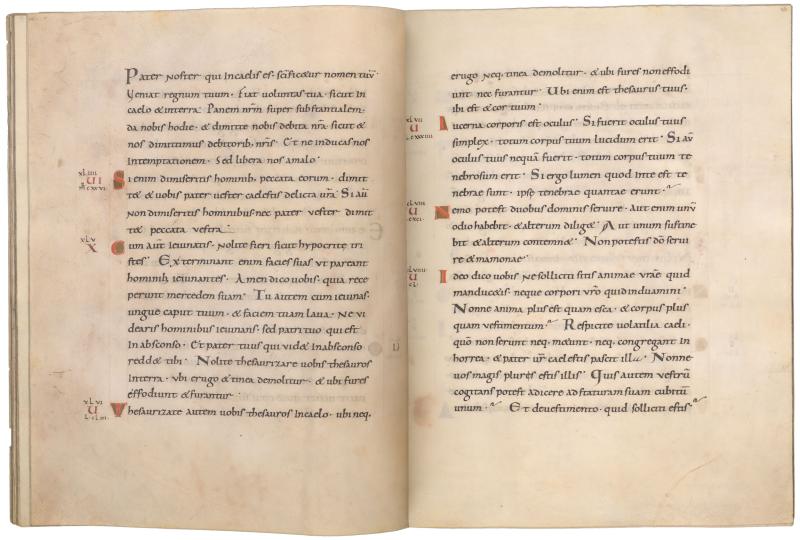 Pater noster qui incaelis es · scificetur nomen tuū
Veniat regnum tuum · Fiat voluntas tua · sicut in
caelo & interra · Panem nrm̄ super substantialem ·
da nobis hodie · & dimitte nobis debita nr̄a · sicut &
nos dimittimus debitorib; nr̄is · Et ne inducas nos
intemptationem · Sed libera nos amalo ·
xLIIII
VI
Si enim dimiseritis hominib; peccata eorum · dimit
t& & vobis pater uester caelestis delicta ur̄a · Si aū
non dimiseritis hominibus nec pater vester dimit
t& peccata vestra ·
xLV
X
Cum aut̄ ieiunatis · Nolite fieri sicut hypocrite tri
stes · Exterminant enim facies suas ut pareant
hominib; ieiunantes · Amen dico uobis · quia rece
perunt mercedem suam · Tu autem cum ieiunas ·
ungue caput tuum · & faciem tuam laua · Ne vi
dearis hominibus ieiunans · sed patri tuo qui est
in absconso · Et pater tuus qui vid& in absconso
redd& tibi · Nolite thesaurizare uobis thesauros
interra · ubi erugo & tinea demolitur · & ubi fures
effodiunt & furantur
xLVI
U
Thesaurizate autem uobis thesauros incaelo · ubi neq.
erugo neq. tinea demolitur · & ubi fures non effodi
unt nec furantur · Ubi enim est thesaurus tuus ·
ibi est & cor tuum ·
xLVII
U
Lucerna corporis est oculus · Si fuerit oculus tuus
simplex · totum corpus tuum lucidum erit · Si aū
oculus tuus nequā fuerit · totum corpus tuum te
nebrosum erit · Si ergo lumen quod inte est te
nebrae sunt · ipsę tenebrae quantae erunt ·
xLVIII
U
Nemo potest duobus dominis seruire · aut enim unū
odio habebit · & alterum dilig& · Aut unum sustine
bit & alterum contemn& · Non potestis dō serui
re & mamonae ·
xLVIIII
U
cL
Ideo dico vobis Ne solliciti sitis animae vr̄ae quid
manducetis · neque corpori vr̄o quid induamini ·
Nonne anima plus est quam esca · & corpus plus
quam vestimentum · Respicite volatilia caeli ·
quō non serunt neq. metunt · neq. congregant in
horrea · & pater ur̄ caelestis pascit illa · Nonne
vos magis plures estis illis · Quis autem vestrū
cogitans potest adicere ad staturam suam cubitū
unum · Et devestimento · quid solliciti estis ·